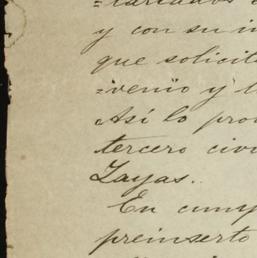 =tarcados
y con su in
que solicit
=venio y l
Así lo pro
tercero civi
Zayas..
En cump
preinserto